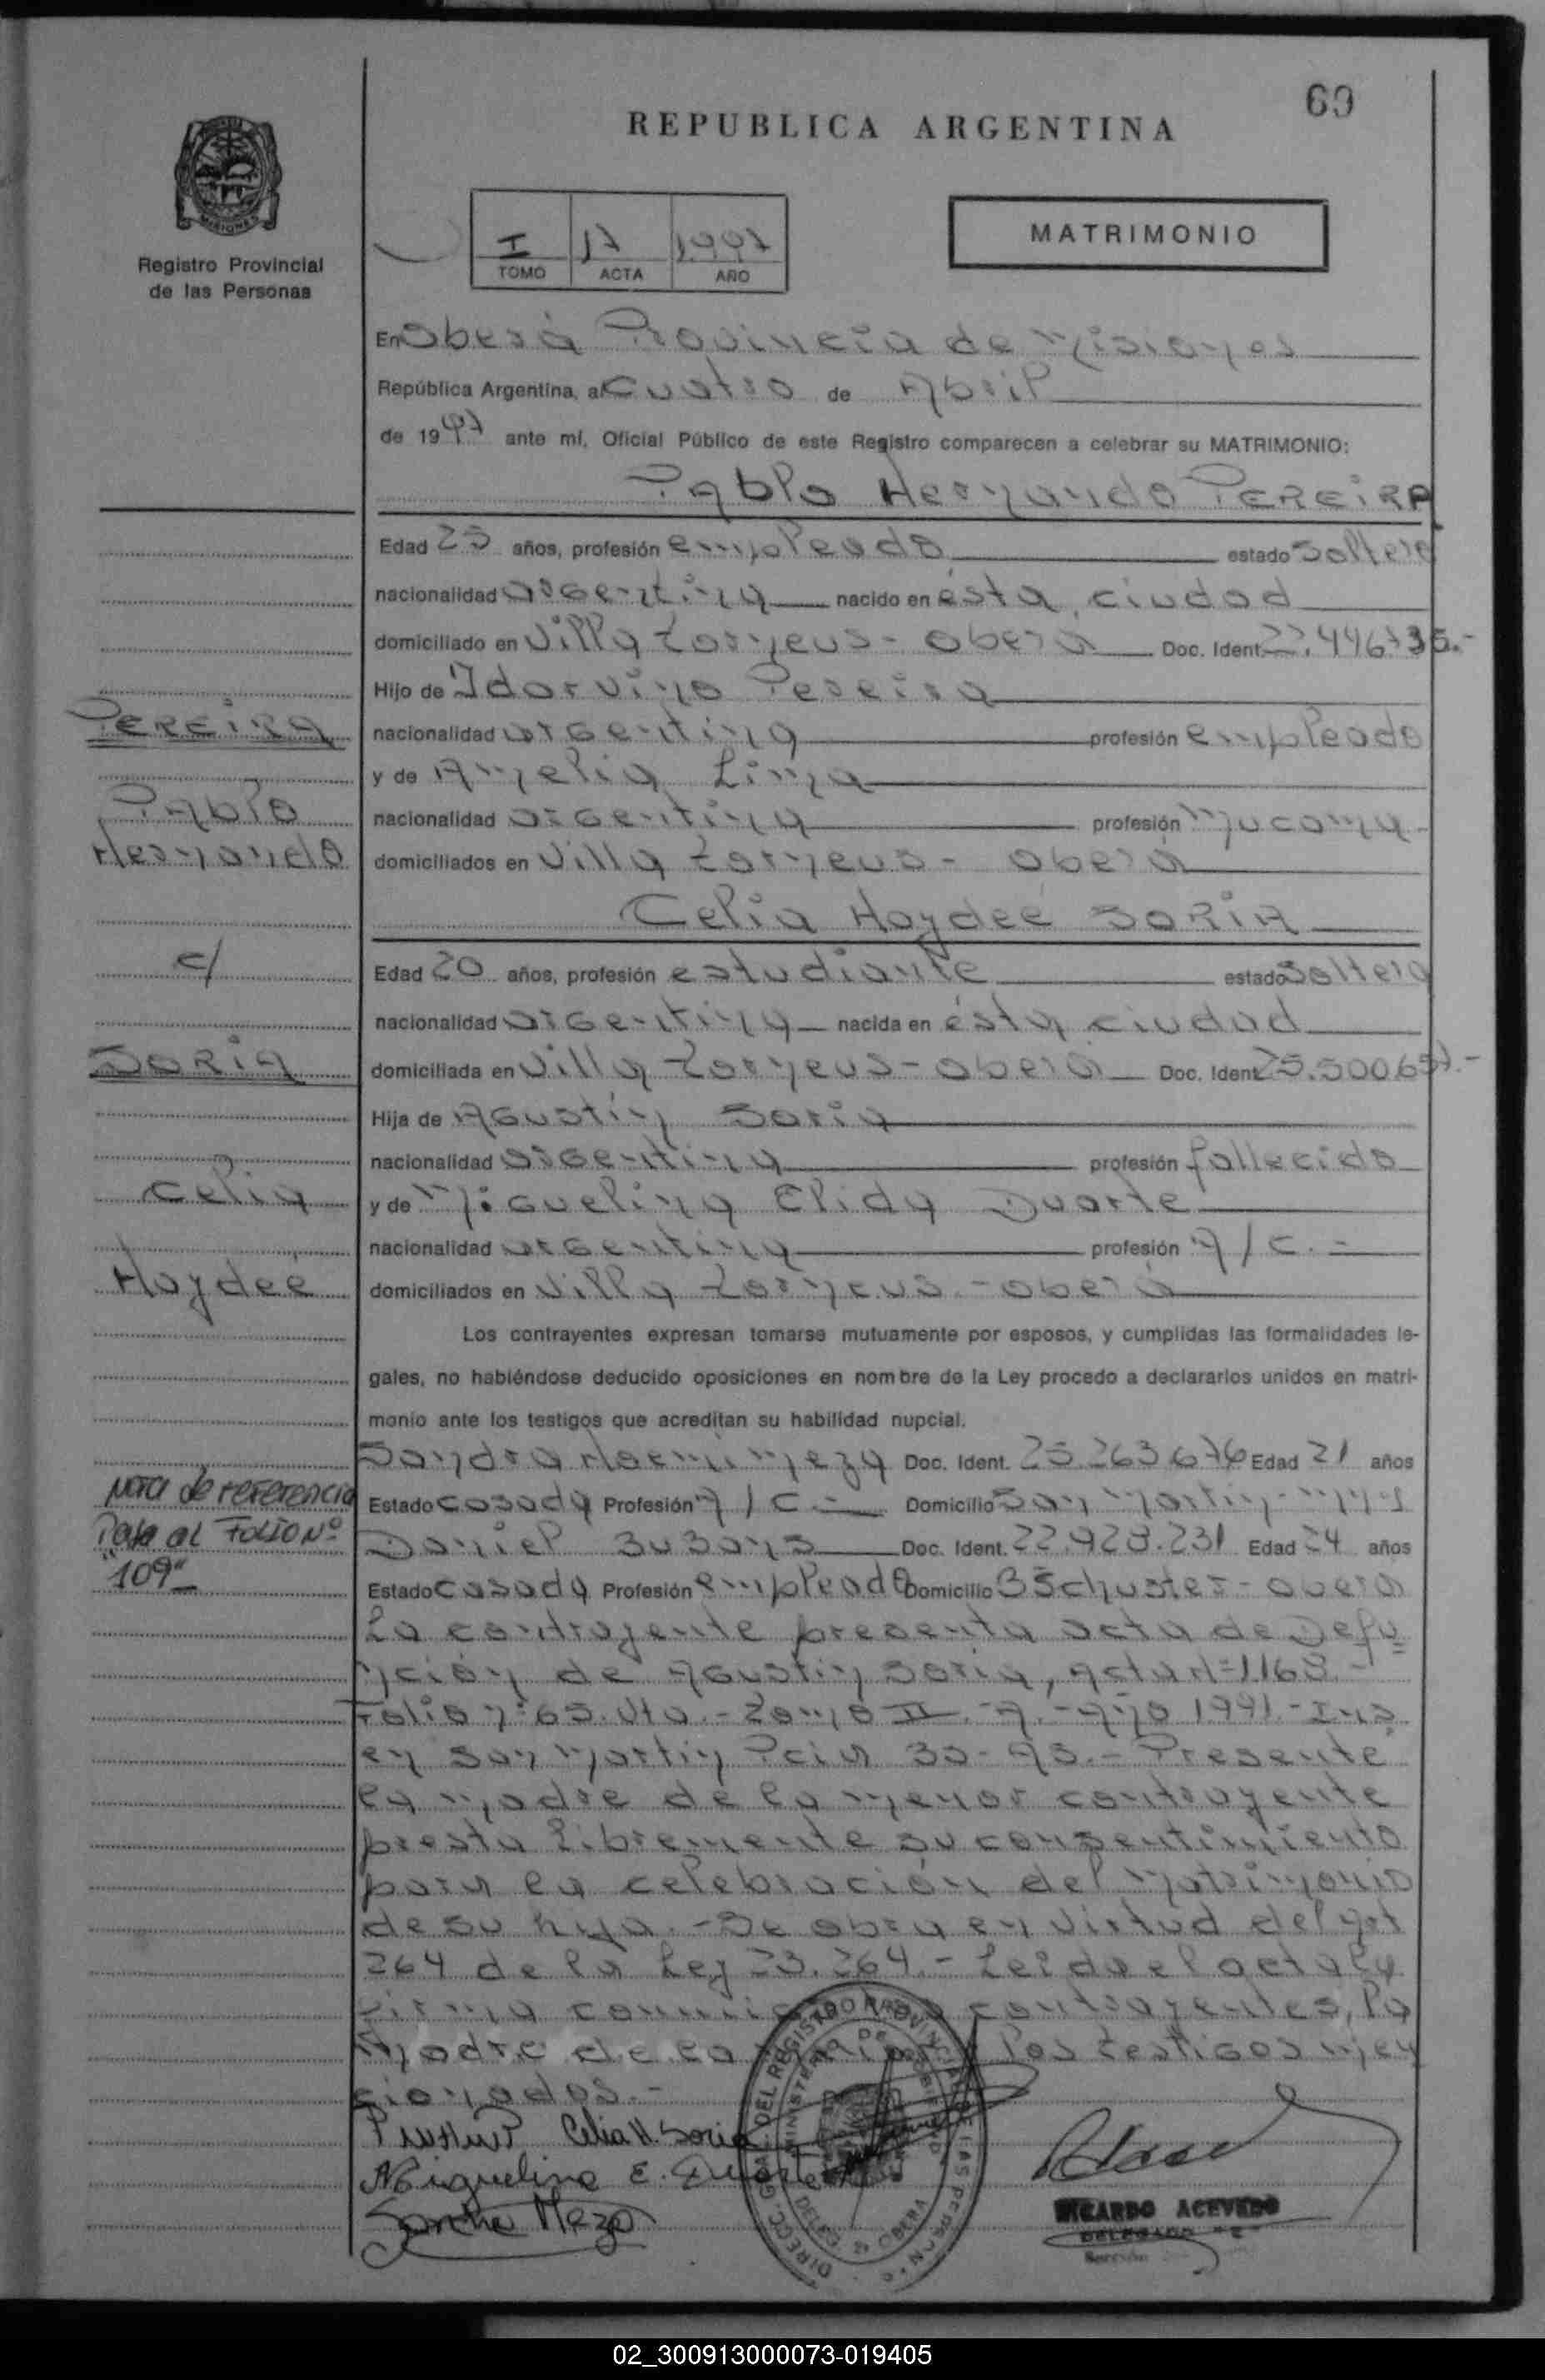 69
REPUBLICA ARGENTINA
MISIONES
Registro Provincial
de las Personas
I 17 1997
TOMO ACTA AÑO
MATRIMONIO
En Oberá Provincia de Misiones
República Argentina, a Cuatro de Abril
de 1997 ante mí, Oficial Público de este Registro comparecen a celebrar su MATRIMONIO:
Pablo Hernando PEREIRA
Edad 25 años, profesión empleado estado soltero
nacionalidad argentina nacido en ésta ciudad
domiciliado en Villa Torneus - Oberá Doc. Ident. 22.446.735.-
Hijo de Idorvino Pereira
nacionalidad argentina profesión empleado
y de Amelia Lima
nacionalidad argentina profesión mucama
domiciliados en Villa Torneus - Oberá
Celia Haydeé SORIA
Edad 20 años, profesión estudiante estado soltera
nacionalidad argentina nacida en ésta ciudad
domiciliada en Villa Torneus - Oberá Doc. Ident. 25.500.657.-
Hija de Agustín Soria
nacionalidad argentina profesión fallecido
y de Miguelina Elida Duarte
nacionalidad argentina profesión A/C.-
domiciliados en Villa Torneus - Oberá
PEREIRA
Pablo
Hernando
c/
SORIA
Celia
Haydeé
Nota de referencia
Pasa al FOLIO Nº
"109"
Los contrayentes expresan tomarse mutuamente por esposos, y cumplidas las formalidades le-
gales, no habiéndose deducido oposiciones en nombre de la Ley procedo a declararlos unidos en matri-
monio ante los testigos que acreditan su habilidad nupcial.
Sandra Noemi Meza Doc. Ident. 25.263.676 Edad 21 años
Estado casada Profesión A/C.- Domicilio San Martin -
Daniel Doc. Ident. 22.928.231 Edad 24 años
Estado casado Profesión empleado Domicilio Schuster - Oberá
La contrayente presenta acta de Defu
nción de Agustín Soria, acta nº 1168.-
Folio nº 65. Vto.- Tomo II.-A.-año 1991.- Ins
en San Martin Pcia Bs-As.- Presente
la madre de la menor contrayente
presta libremente su consentimiento
para la celebración del matrimonio
de su hija.- Se obra en virtud del art
264 de la Ley 23.264.- Leida el acta la
firma conmigo contrayentes, la
Madre de la los testigos men
cionados.-
Celia H. Soria
Miguelina E. Duarte
Sandra Meza
DIRECC. GRAL. DEL REGISTRO PROVINCIAL DE LAS PERSONAS
MINISTERIO DE GOBIERNO
DELEG. OBERA
RICARDO ACEVEDO
DELEGADO "E"
02_300913000073-019405